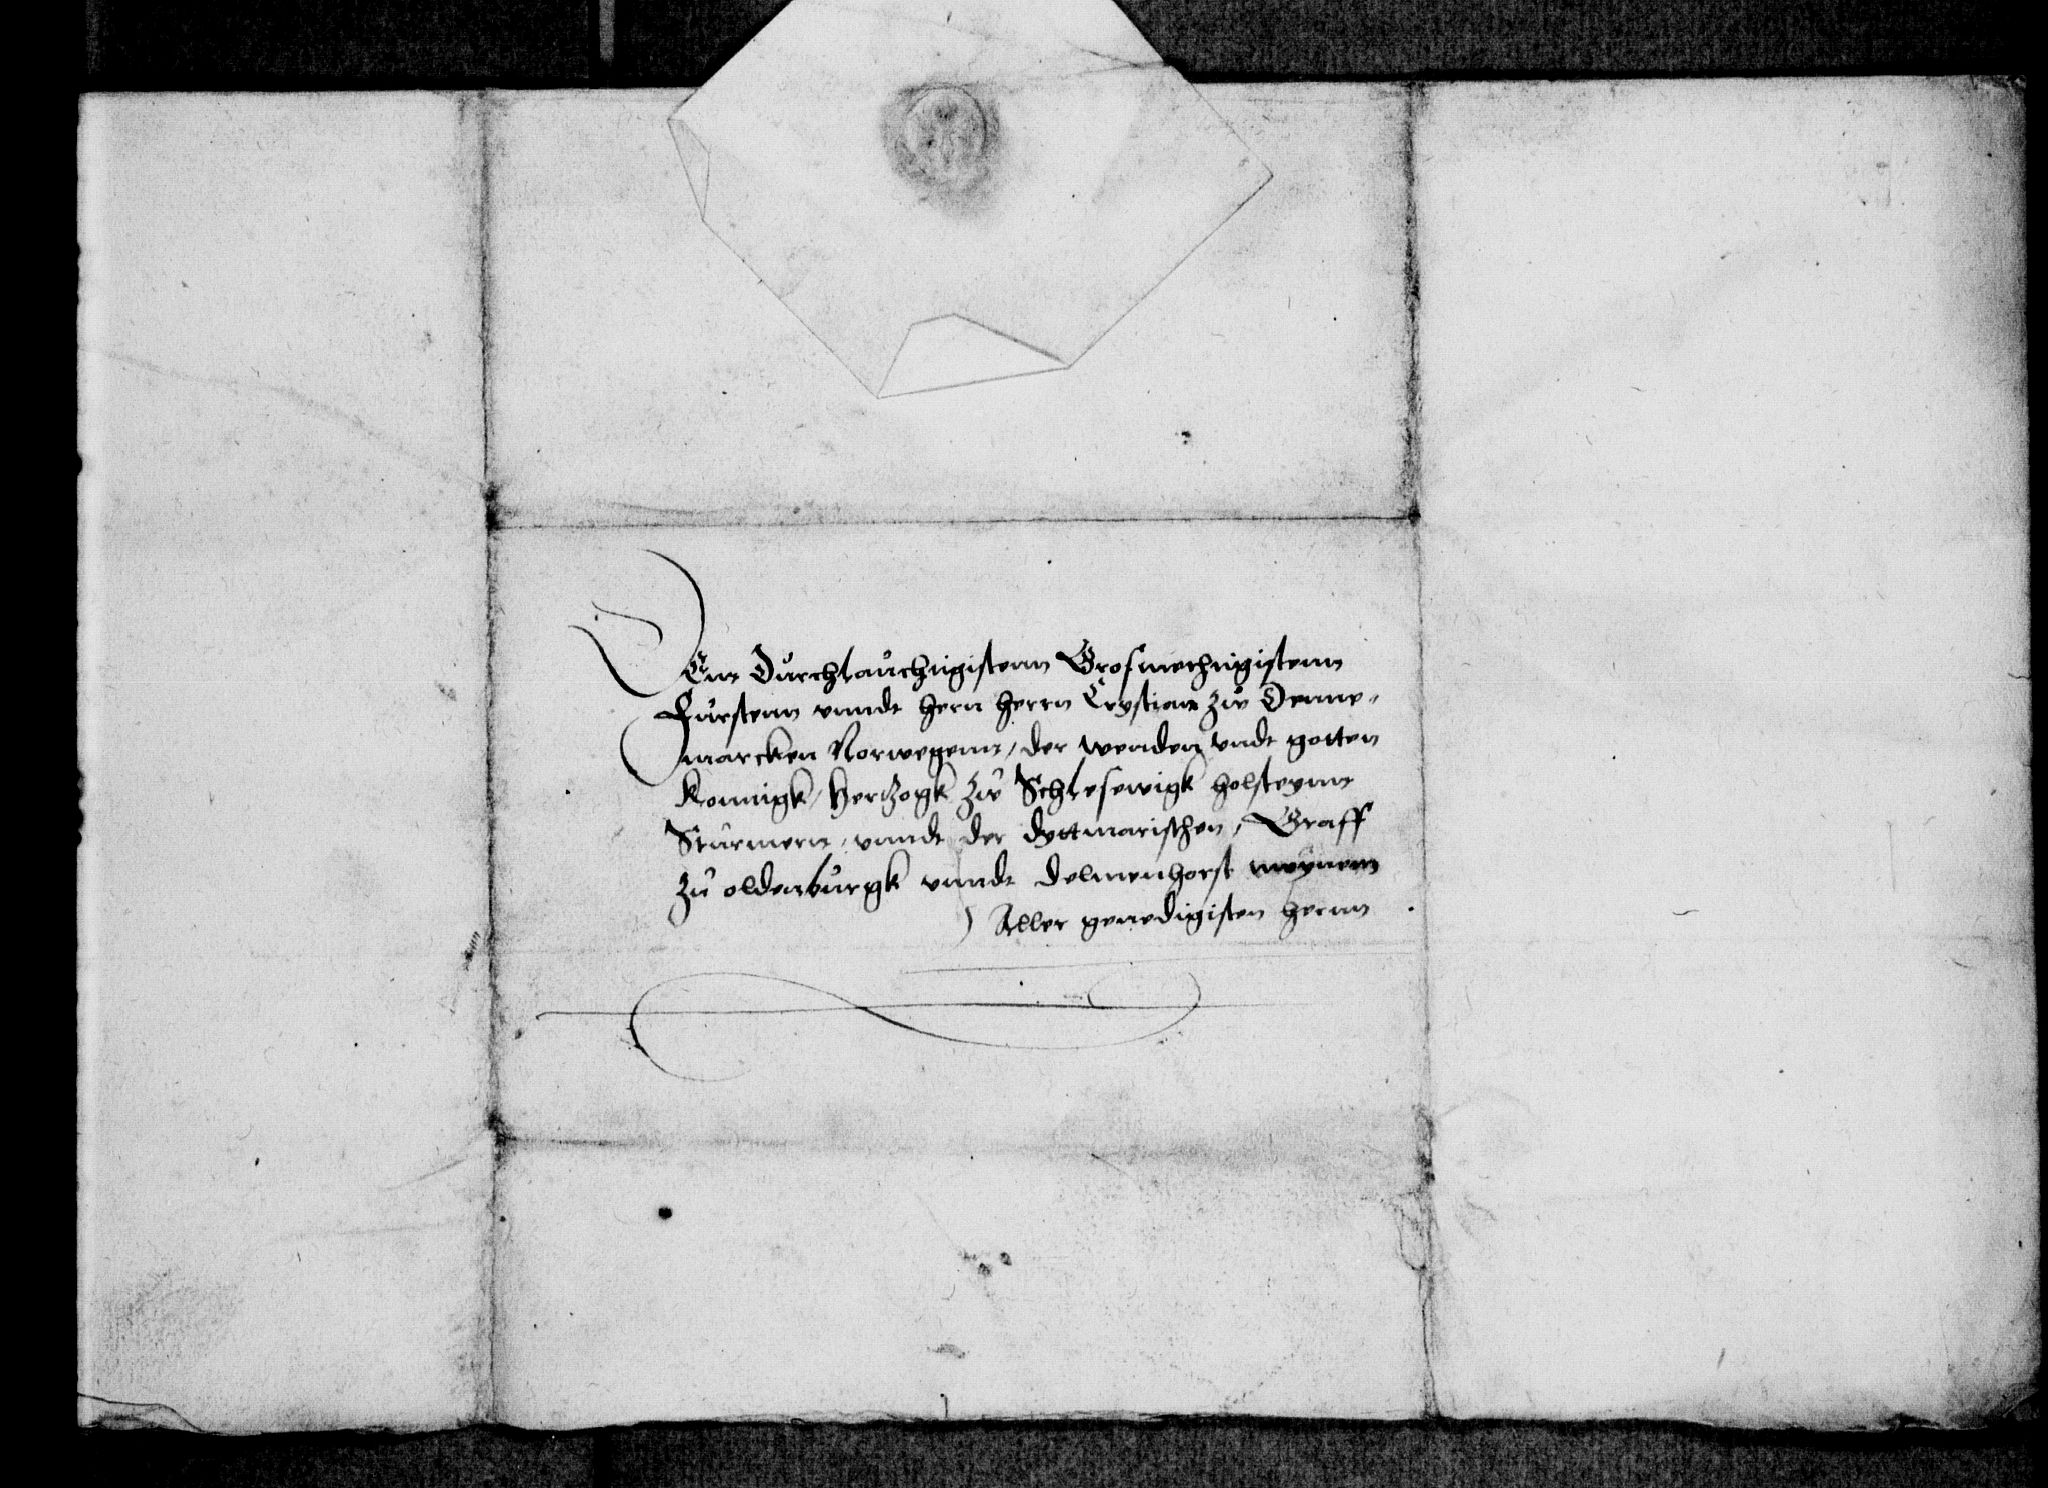 Dem Durchlauchtigistenn Grosmechtigistenn
Furstenn vnndt hern herrn Crystiann zw Denne-
marcken Norwegenn, der wenden vndt gotten
Konnigk, Hertzogk zw Schlesewigk holsteynn
Sturmern, vnndt der dyttmarischen, Graff
zu oldenburgk vnndt delmenhorst meynem
Aller genedigisten hernn